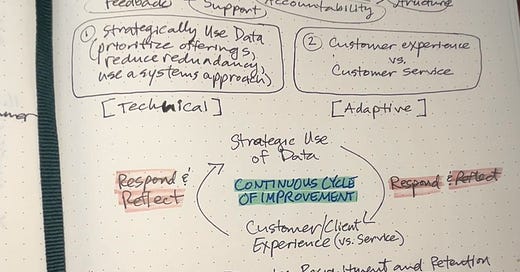 Feedback Support Accountability Structure
① Strategically Use Data
(prioritize offerings,
reduce redundancy,
use a systems approach)
② Customer experience
vs.
Customer Service
[Technical]
[Adaptive]
Strategic Use
of Data
Respond &
Reflect
CONTINUOUS CYCLE
OF IMPROVEMENT
Respond & Reflect
Customer/Client
Experience (vs. Service)
Recruitment and Retention